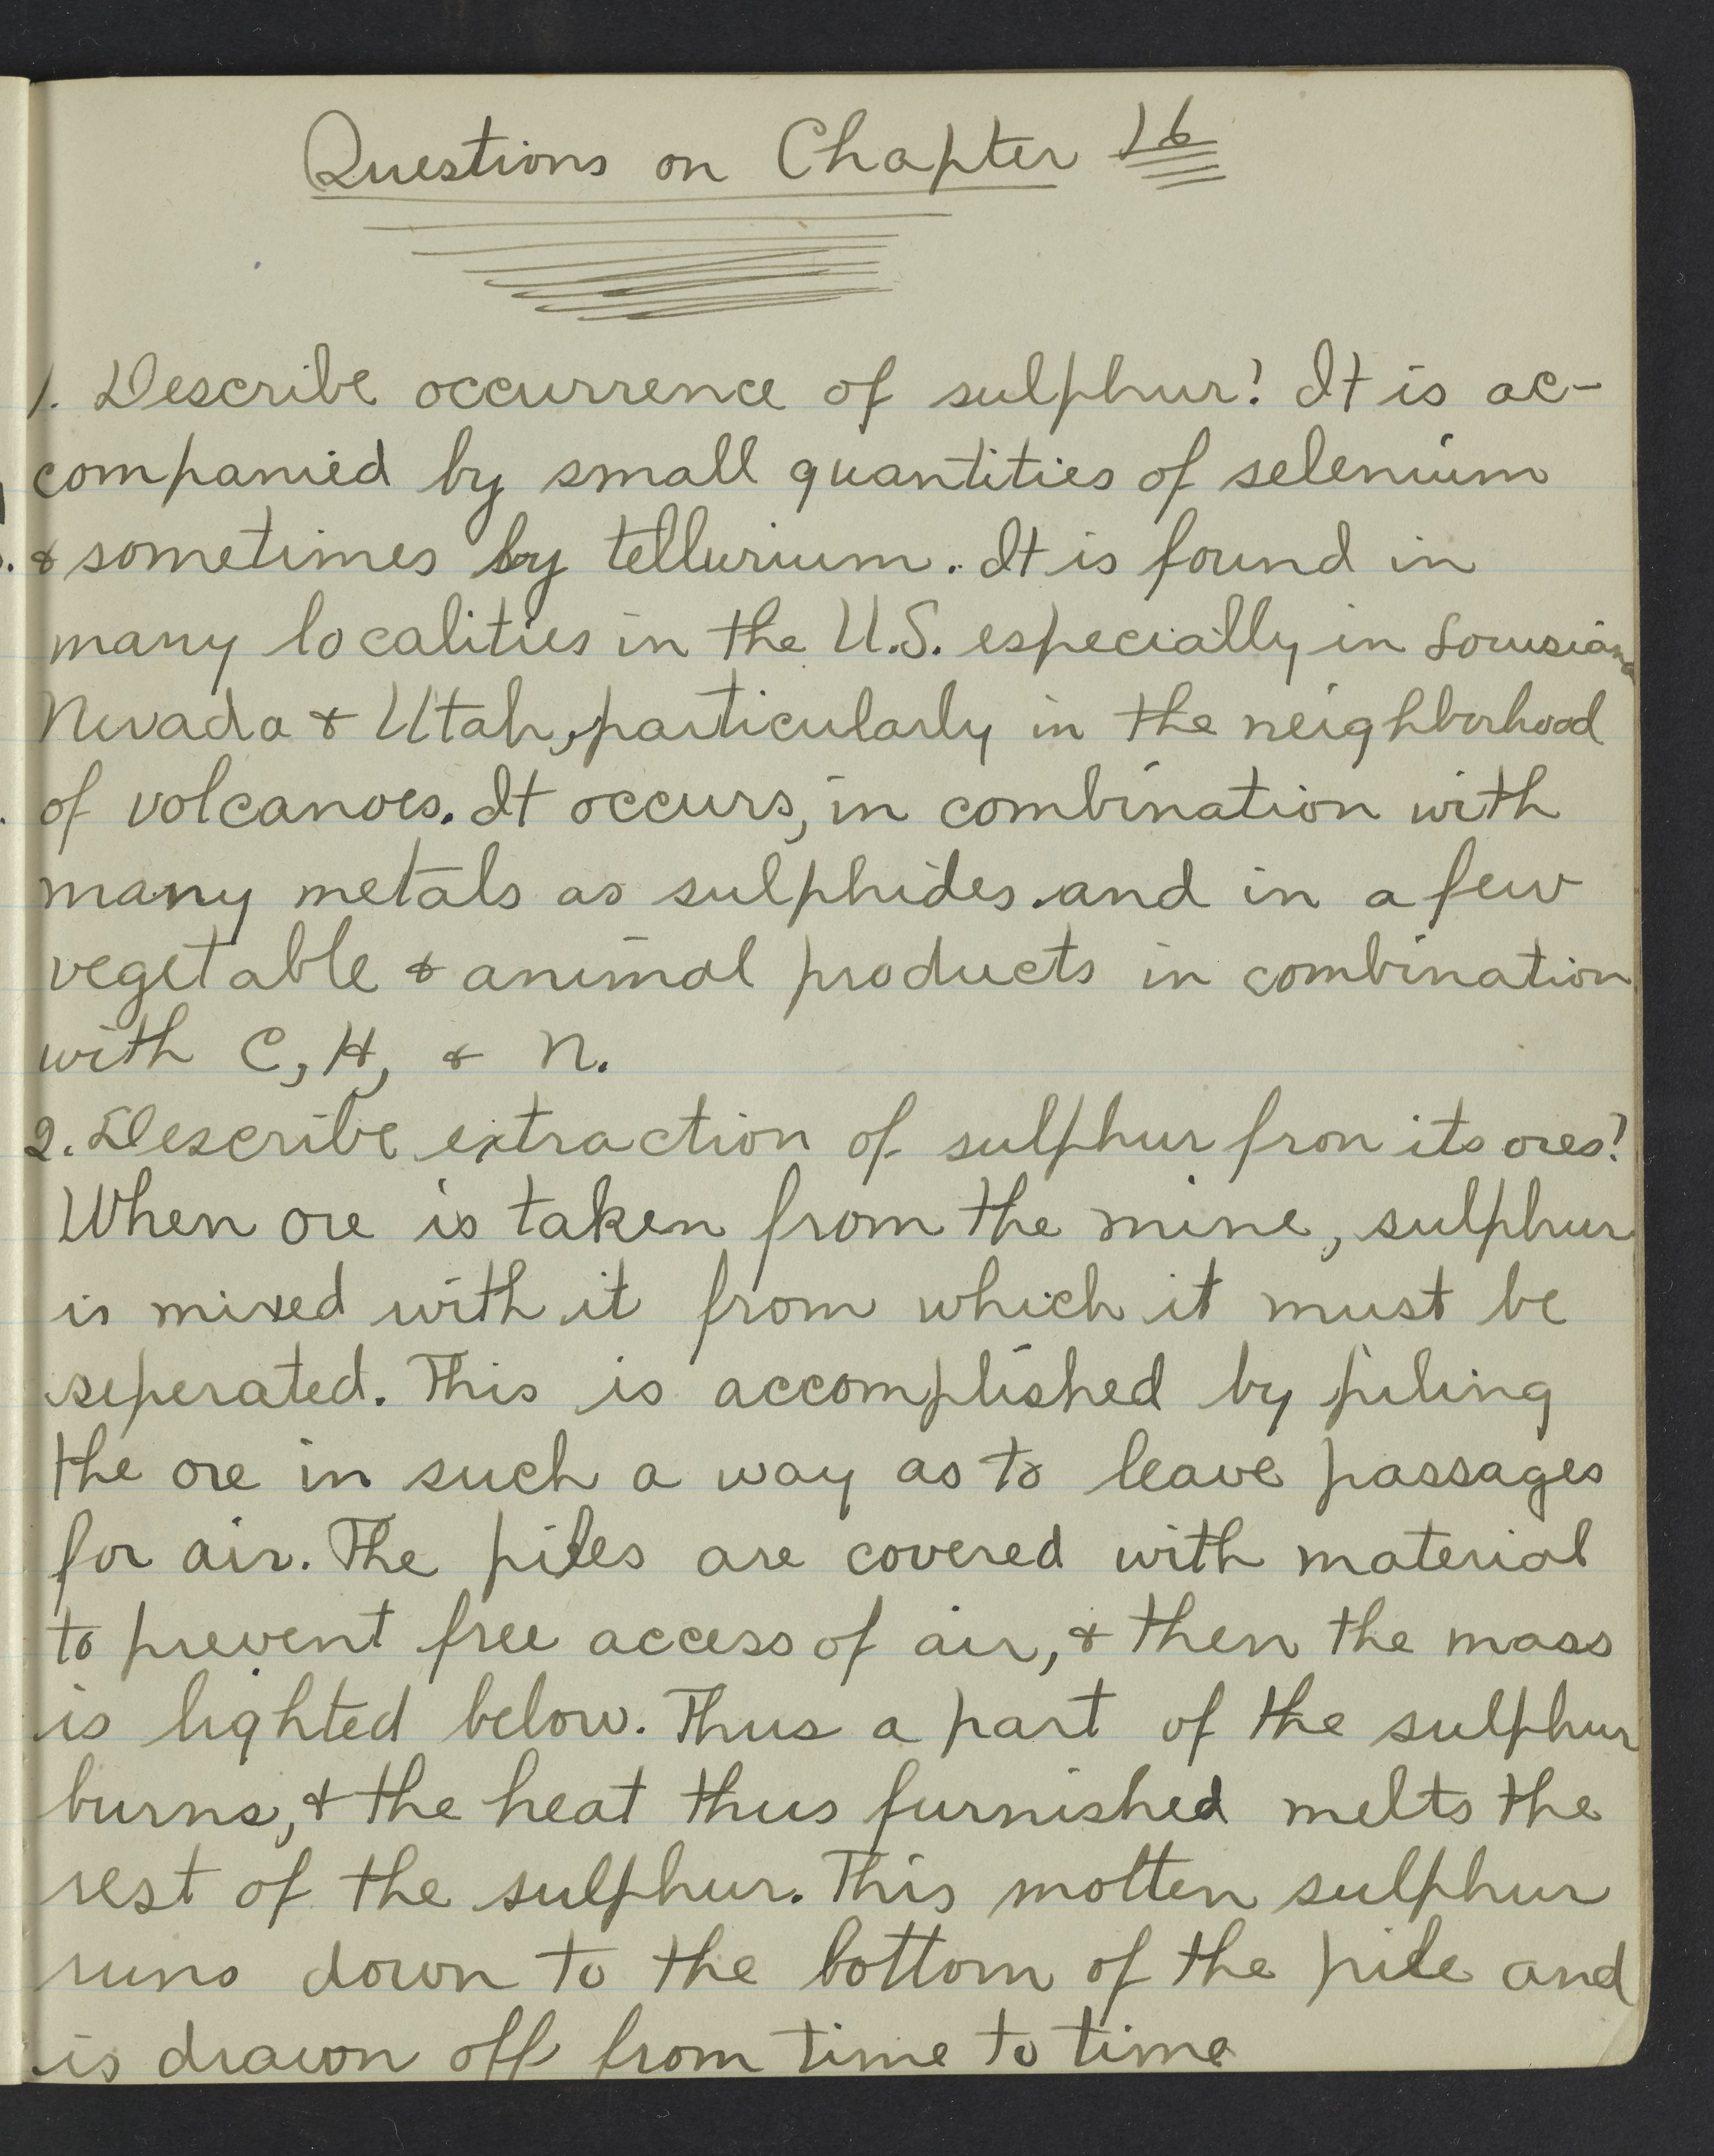 Questions on Chapter 16
1. Describe occurrence of sulphur? It is ac-
companied by small quantities of selenium
& sometimes by tellurium. It is found in
many localities in the U.S. especially in Louisiana
Nevada & Utah, particularly in the neighborhood
of volcanoes. It occurs, in combination with
many metals as sulphides. and in a few
vegetable & animal products in combination
with C, H, & N.
2. Describe extraction of sulphur fron its ores?
When ore is taken from the mine, sulphur
is mixed with it from which it must be
seperated. This is accomplished by piling
the ore in such a way as to leave passages
for air. The piles are covered with material
to prevent free access of air, & then the mass
is lighted below. Thus a part of the sulphur
burns, & the heat thus furnished melts the
rest of the sulphur. This molten sulphur
runs down to the bottom of the pile and
is drawn off from time to time